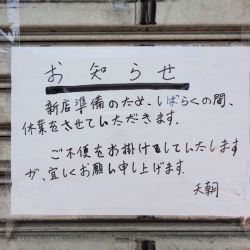 お知らせ
新店準備のため、しばらくの間、
休業をさせていただきます。
ご不便をお掛けもしていたします
が、宜しくお願い申し上げます.
天朝